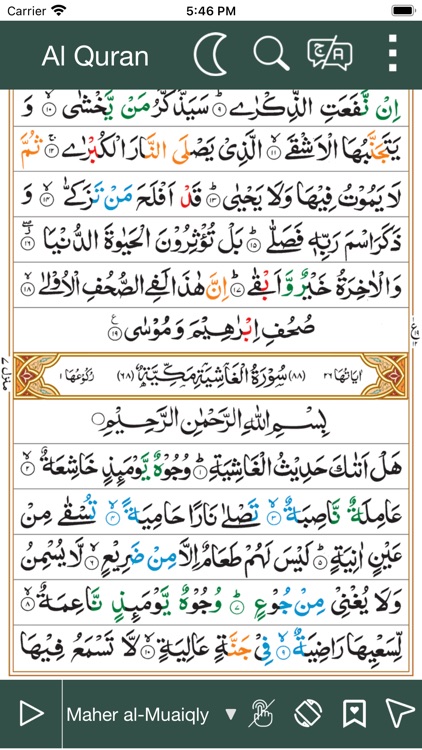 Carrier 5:46 PM
Al Quran
اِنۡ نَّفَعَتِ الذِّكۡرٰى ۹ سَيَذَّكَّرُ مَنۡ يَّخۡشٰى ۱۰ وَ
يَتَجَنَّبُهَا الۡاَشۡقَى ۱۱ الَّذِىۡ يَصۡلَى النَّارَ الۡكُبۡرٰى ۱۲ ثُمَّ
لَا يَمُوۡتُ فِيۡهَا وَلَا يَحۡيٰى ۱۳ قَدۡ اَفۡلَحَ مَنۡ تَزَكّٰى ۱۴ وَ
ذَكَرَ اسۡمَ رَبِّهٖ فَصَلّٰى ۱۵ بَلۡ تُؤۡثِرُوۡنَ الۡحَيٰوةَ الدُّنۡيَا ۱۶
وَالۡاٰخِرَةُ خَيۡرٌ وَّاَبۡقٰى ۱۷ اِنَّ هٰذَا لَفِى الصُّحُفِ الۡاُوۡلٰى ۱۸
صُحُفِ اِبۡرٰهِيۡمَ وَمُوۡسٰى ۱۹
اٰيَاتُهَا ۲۶ (۸۸) سُوۡرَةُ الۡغَاشِيَةِ مَكِّيَّةٌ (۶۸) رُكُوۡعُهَا ۱
منزل ۷
بِسۡمِ اللهِ الرَّحۡمٰنِ الرَّحِيۡمِ
هَلۡ اَتٰىكَ حَدِيۡثُ الۡغَاشِيَةِ ۱ وُجُوۡهٌ يَّوۡمَئِذٍ خَاشِعَةٌ ۲
عَامِلَةٌ نَّاصِبَةٌ ۳ تَصۡلٰى نَارًا حَامِيَةً ۴ تُسۡقٰى مِنۡ
عَيۡنٍ اٰنِيَةٍ ۵ لَيۡسَ لَهُمۡ طَعَامٌ اِلَّا مِنۡ ضَرِيۡعٍ ۶ لَّا يُسۡمِنُ
وَلَا يُغۡنِىۡ مِنۡ جُوۡعٍ ۷ وُجُوۡهٌ يَّوۡمَئِذٍ نَّاعِمَةٌ ۸
لِّسَعۡيِهَا رَاضِيَةٌ ۹ فِىۡ جَنَّةٍ عَالِيَةٍ ۱۰ لَّا تَسۡمَعُ فِيۡهَا
Maher al-Muaiqly